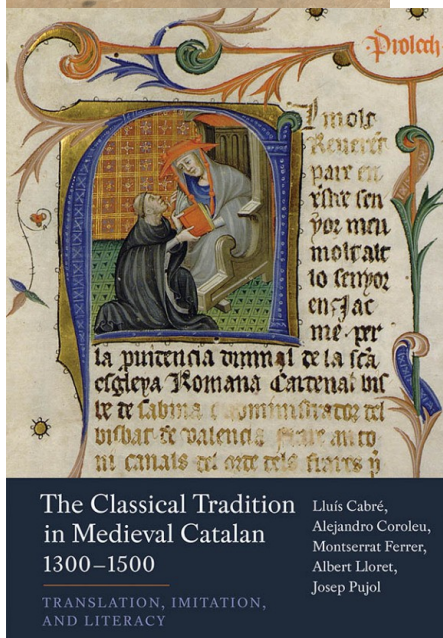 Prolech
l molt
Reueret
pare en
xpist sen
yor meu
molt alt
lo senyor
en Jac
me per
la
diuinal de la sca
esgleya Romana Cardenal bis
be de sabina e administrador del
bisbat de valencia frare anto
ni canals del orde dels frares p
The Classical Tradition
in Medieval Catalan
1300–1500
TRANSLATION, IMITATION,
AND LITERACY
Lluís Cabré,
Alejandro Coroleu,
Montserrat Ferrer,
Albert Lloret,
Josep Pujol